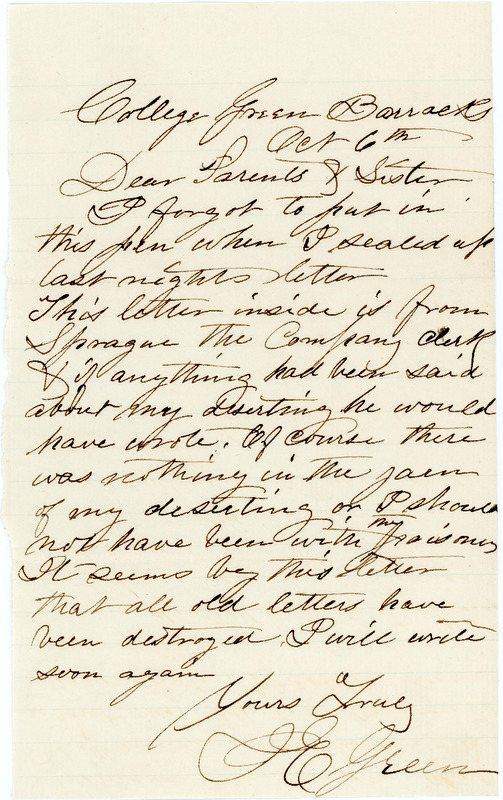 College Green Barracks
Oct 6th
Dear Parents & Sister
I forgot to put in
this pen when I sealed up
last nights letter
This letter inside is from
Sprague the Company clerk
& if anything had been said
about my deserting he would
have wrote. Of course there
was nothing in the
of my deserting or I should
not have been with my
It seems by this letter
that all old letters have
been destroyed I will write
soon again
Yours Truly
J E Green